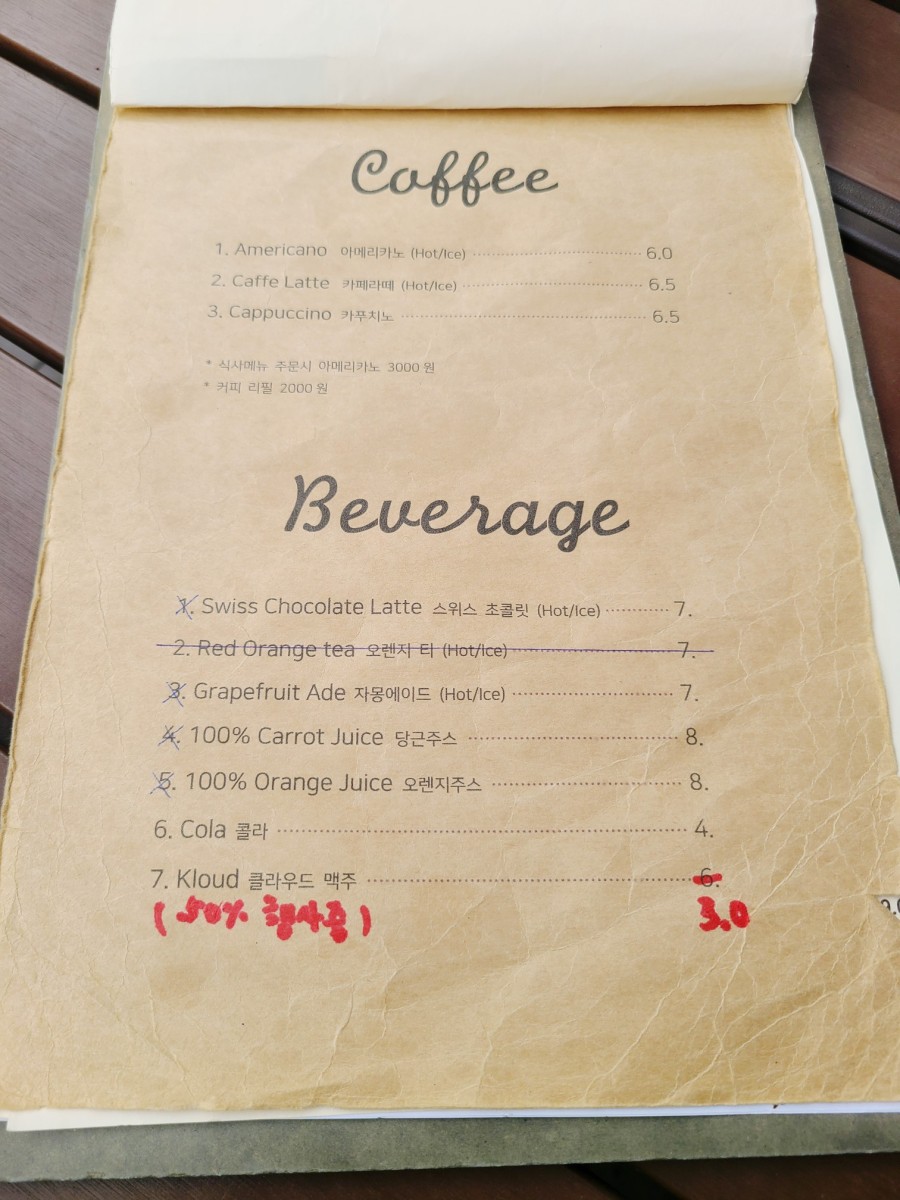 Coffee
1. Americano 아메리카노 (Hot/Ice) 6.0
2. Caffe Latte 카페라떼 (Hot/Ice) 6.5
3. Cappuccino 카푸치노 6.5
* 식사메뉴 주문시 아메리카노 3000원
* 커피 리필 2000원
Beverage
1. Swiss Chocolate Latte 스위스 초콜릿 (Hot/Ice) 7.
2. Red Orange tea 오렌지 티 (Hot/Ice) 7.
3. Grapefruit Ade 자몽에이드 (Hot/Ice) 7.
4. 100% Carrot Juice 당근주스 8.
5. 100% Orange Juice 오렌지주스 8.
6. Cola 콜라 4.
7. Kloud 클라우드 맥주 6.
(50% 행사중) 3.0